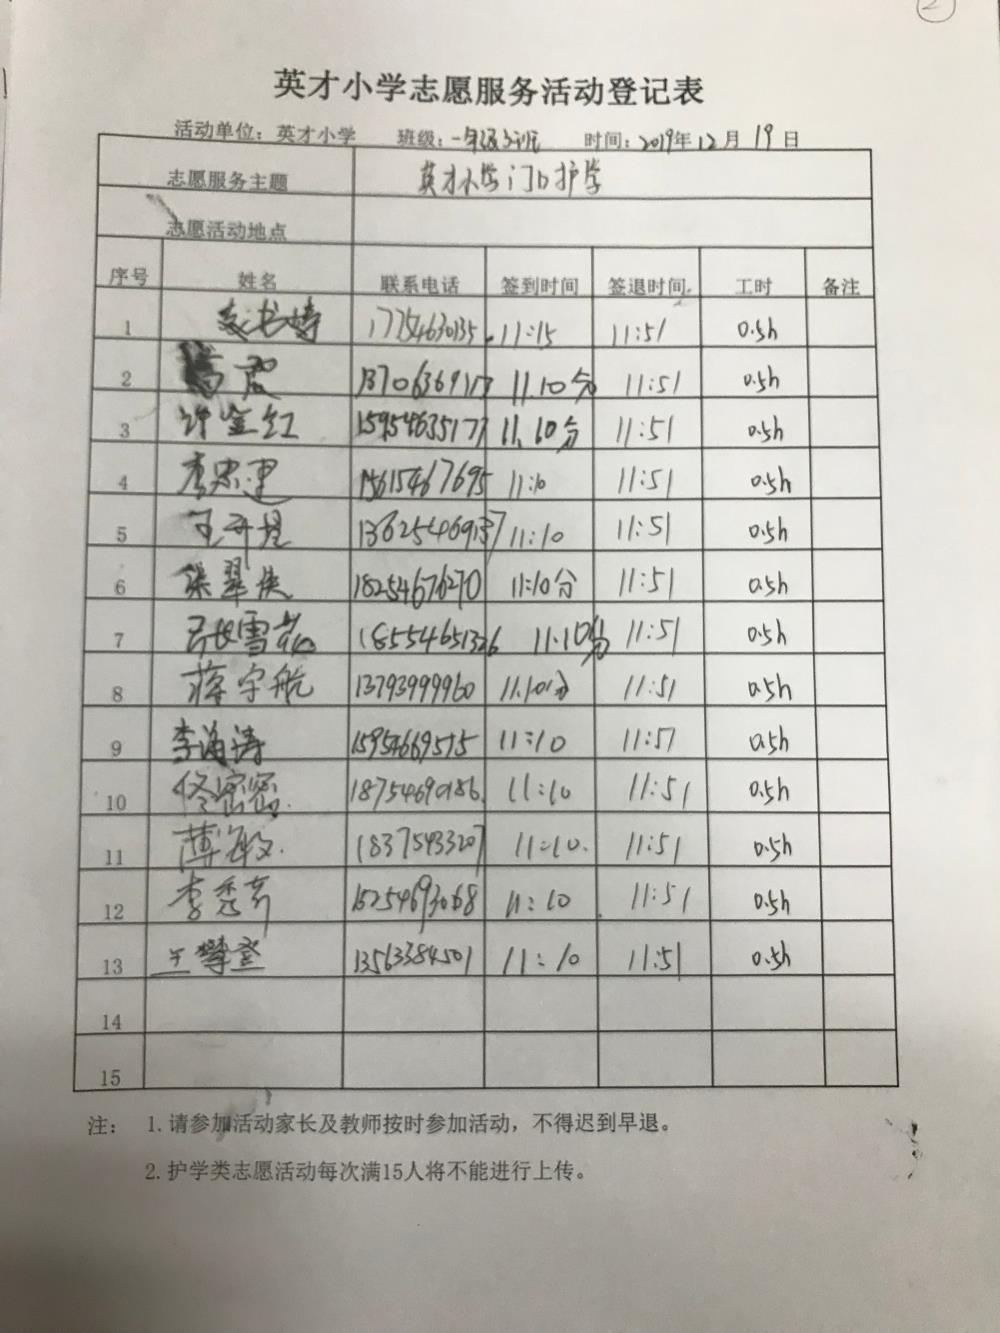 2
英才小学志愿服务活动登记表
活动单位：英才小学 班级：一年级3班 时间：2019年12月19日
志愿服务主题 英才小学门口护学
志愿活动地点
序号 姓名 联系电话 签到时间 签退时间 工时 备注
1 17754630135 11:15 11:51 0.5h
2 13706369117 11.10分 11:51 0.5h
3 许金红 15954635177 11.10分 11:51 0.5h
4 李忠建 15615467695 11:10 11:51 0.5h
5 13625469137 11:10 11:51 0.5h
6 梁翠侠 18254676270 11:10分 11:51 0.5h
7 18554651326 11.10分 11:51 0.5h
8 蒋宇航 13793999960 11.10分 11:51 0.5h
9 李海涛 15954669515 11:10 11:51 0.5h
10 佟密密 18754690186 11:10 11:51 0.5h
11 薄敏 18375433207 11:10 11:51 0.5h
12 李秀芳 15254693068 11:10 11:51 0.5h
13 王攀登 13563384501 11:10 11:51 0.5h
14
15
注： 1.请参加活动家长及教师按时参加活动，不得迟到早退。
2.护学类志愿活动每次满15人将不能进行上传。